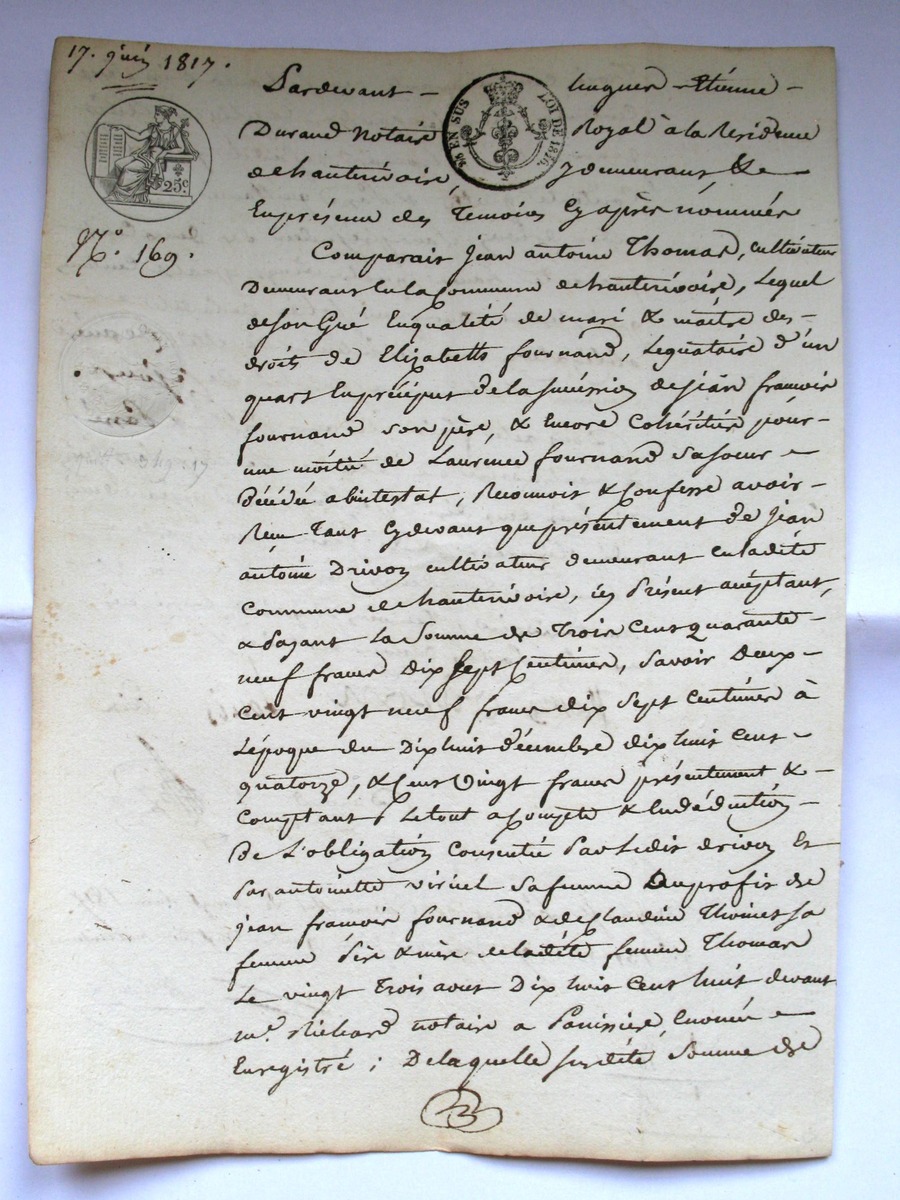 17. juin 1817.
Pardevant - hugues Etienne -
Durand Notaire Royal à la Résidence
de hauterivoire, y demeurant &
En présence des Témoins Cy après nommés
25c.
EN SUS LOI DE 1816.
N.o 169.
Comparait Jean antoine Thomas, cultivateur
Demeurant En la Commune de hauterivoire, Lequel
de son Gré En qualité de mari & maître des-
droits de Elizabeth fournand, Légataire d'un
quart En préciput de la succession de jean francois
fournand son père, & Encore Cohéritier pour-
une moitié de Laurence fournand sa soeur -
Décédé abintestat, Reconnois & Confesse avoir-
Recu Tant Cydevant que présentement de Jean
antoine Drivon cultivateur demeurant en ladite
Commune de hauterivoire, icy présent acceptant,
& payant La Somme de Trois Cent quarante-
neuf francs Dix Sept Centimes, Savoir Deux-
Cent vingt neuf francs dix Sept Centimes à
L'époque du Dix huit décembre dix huit Cent-
quatorze, & Cent Vingt francs présentement &-
Comptant, Le tout a Compte & En déduction-
De L'obligation Consentie Par Ledit drivon Et
Par antoinette sa femme Au profit de
jean francois fournand & de Claudine Thoinet sa
femme Père & mère de ladite femme Thomas
Le vingt Trois aout Dix huit Cent huit devant
m.e Richard notaire a Panissière, -
Enregistré ; De laquelle susdite Somme de